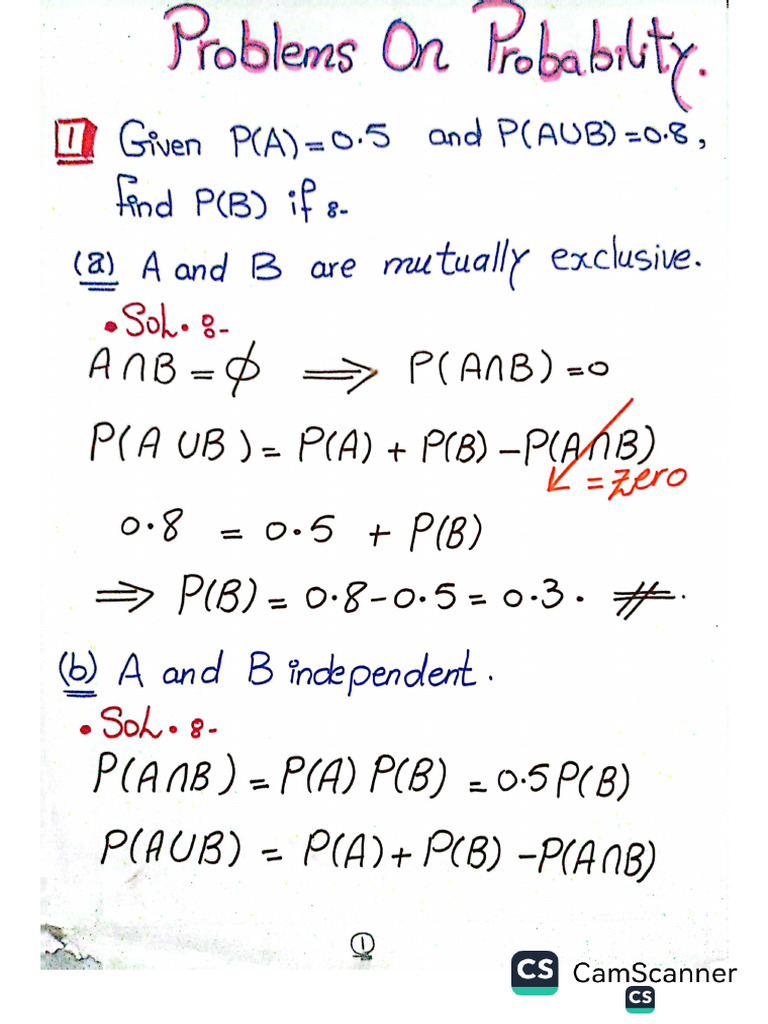 Problems On Probability.
1 Given P(A)=0.5 and P(A∪B)=0.8,
find P(B) if :-
(a) A and B are mutually exclusive.
• Sol. :-
A∩B = ϕ ⟹ P(A∩B)=0
P(A∪B) = P(A) + P(B) - P(A∩B)
= zero
0.8 = 0.5 + P(B)
⟹ P(B) = 0.8-0.5 = 0.3. #.
(b) A and B independent.
• Sol. :-
P(A∩B) = P(A) P(B) = 0.5 P(B)
P(A∪B) = P(A) + P(B) - P(A∩B)
1
CS CamScanner
CS